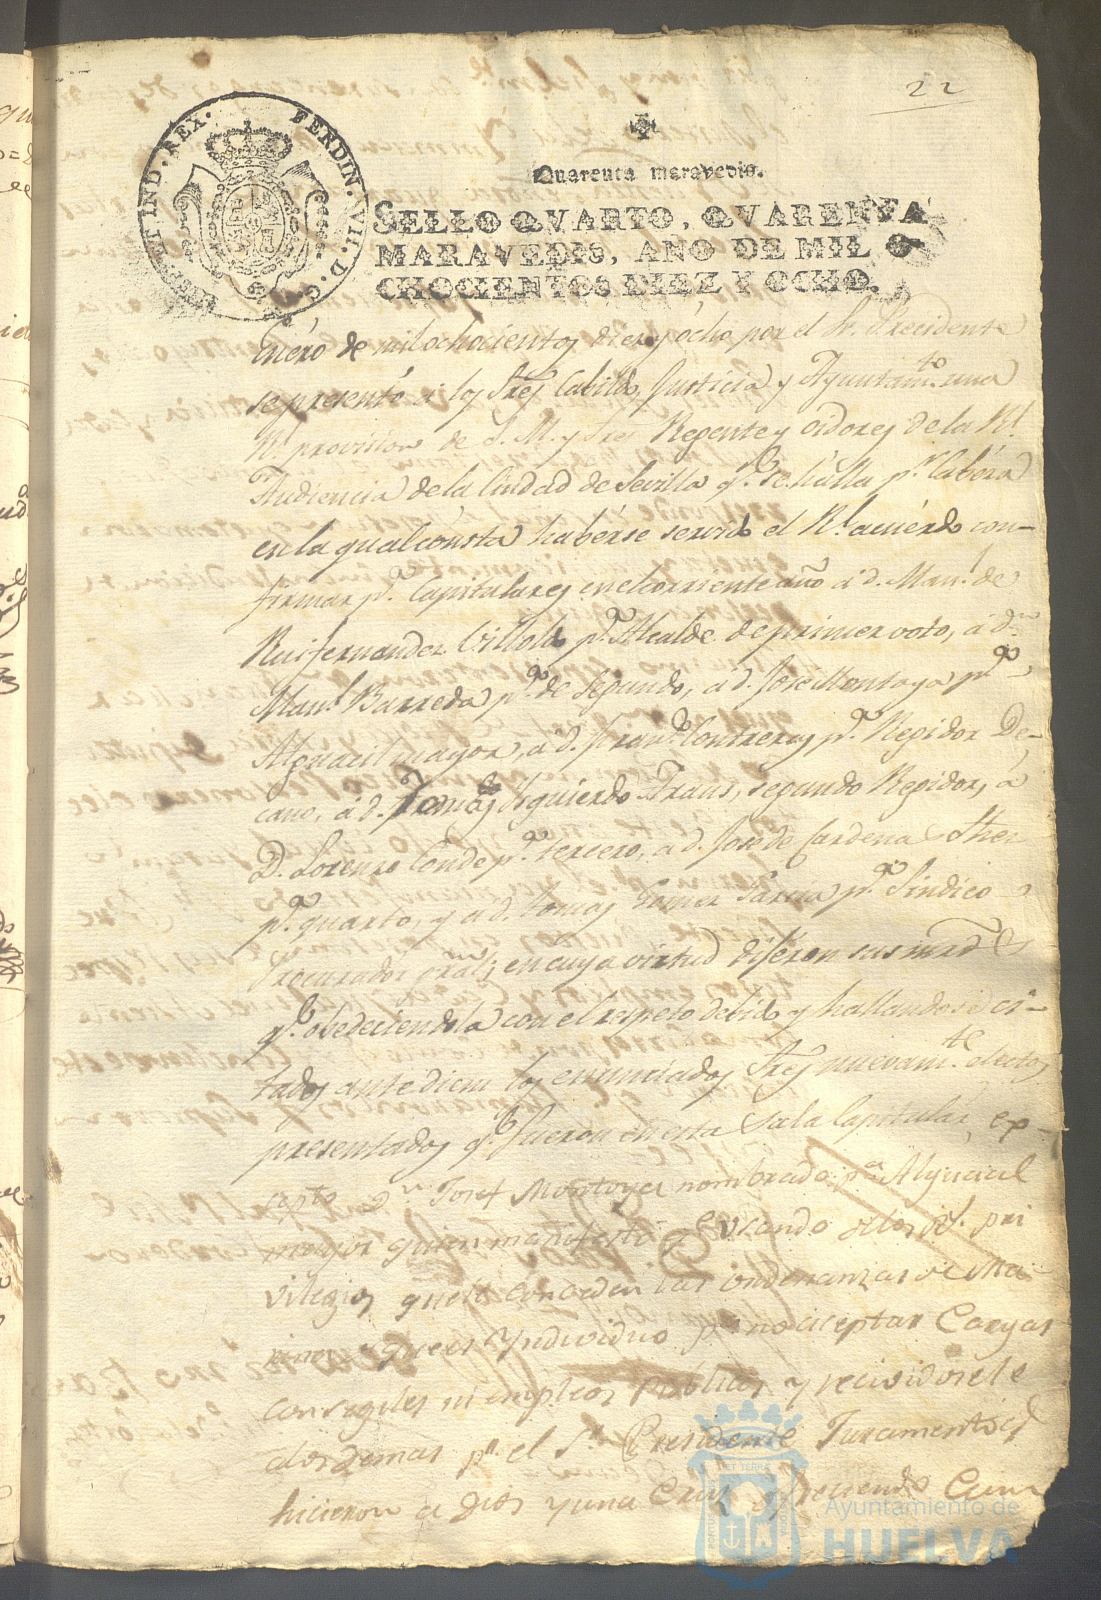 22
Quarenta maravedis.
SELLO QVARTO, QVARENTA
MARAVEDIS, AÑO DE MIL O-
CHOCIENTOS DIEZ Y OCHO.
FERDIN. VII. D. G. HISP. ET IND. REX.
Enéro de mil ochocientos diez y ócho, por el Sr. Precidente
se presentó á los Sres Cabildo, Justicia y Ayuntamto. una
Rl. provision de S. M. y Sres Regente y oidores de la Rl.
Audiencia de la Ciudad de Sevilla qe. se hálla pr. cabéza
en la qual consta habérse servido el Rl. acuérdo con-
firmar pa. Capitulares en el corriente año á d. Manl. de
Ruifernandez Villoldo pa. Alcalde de primer voto, á dn.
Manl. Barreda pa. de segundo, a d. Jose Montoya pa.
Alguacil mayor, á d. Franco. Contreras pa. Regidor De-
cano, á d. Tomás Izquierdo Frans, segundo Regidor, á
D. Lorenzo Conde pa. tercero, a d. Jose de Cardenas
pa. quarto, y a d. Tomas Gomez Garcia pa. Sindico
Procurador gral; en cuya virtud dijéron sus mrds
qe. obedeciendola con el respeto debido y hallandose ci-
tados ante diem los enunciados Sres nuevamte. electos
presentados qe. fueron en esta Sala Capitulár, ex-
septo dn. Josef Montoya nombrado pa. Alguacil
mayor quien manifestó usando de los pri
vilegios que le conceden las ordenanzas de Ma-
rina de que es Yndividuo pa. no aceptar Cargos
consegiles ni empleos publicos y recividosele
alos demas pr. el Sr. Presidente Juramento qe.
hicieron a Dios y una Cruz ofreciendo Cum
Ayuntamiento de
HUELVA